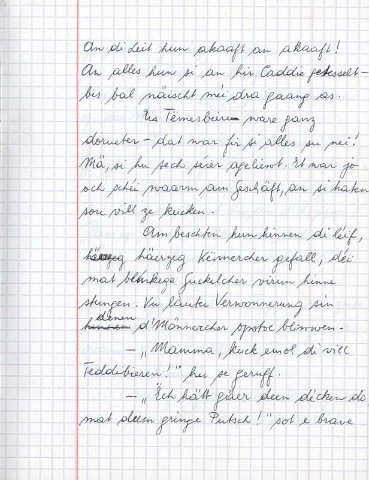 An di Leit hun akaaft an akaaft!
An alles hun si an hir Caddie gefesselt -
bis bal näischt méi dra gaang as.
Eis Tëmesbieren ware ganz
doruëter - dat war fir si alles su nei!
Mä, si hu sech séier ageliewt. Et war jo
och schéi waarm am Geschäft, an si haten
sou vill ze kucken.
Am beschten hun hinnen di léif,
häerzeg Kënnercher gefall, déi
mat blénkege Guckelcher virun hinne
stungen. Vu lauter Verwonnerung sin
dënen d'Männercher opstoe bliwwen.
- „Mamma, kuck emol di vill
Teddibieren!" hu se geruff.
- „Ech hätt gäer deen décken do
mat deem gringe Putsch!" sot e brave